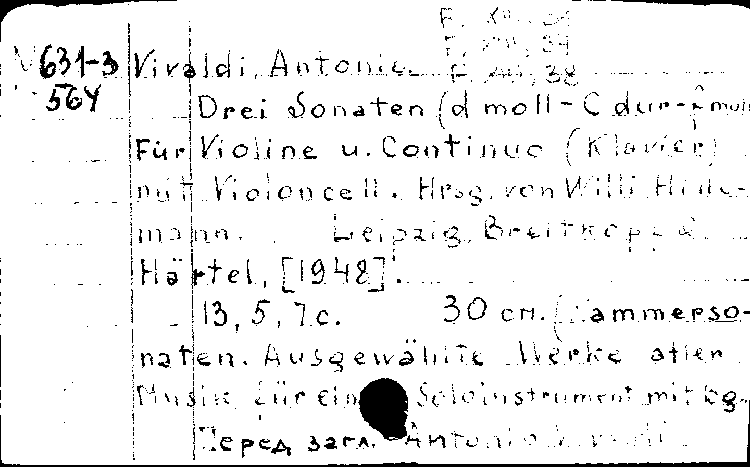 34
38
М 631-3 Vivaldi, Antonio.
564
Drei Sonaten (d moll-C dur-f moll
Für Violine u. Continuo (Klavier)
mit Violoncell. Hrsg. von Willi Hille-
mann. Leipzig, Breitkopf &
Härtel, [1948].
13, 5, 7 с. 30 см. (Kammerso-
naten. Ausgewählte Werke alter
Musik für ein Soloinstrument mit Bg.
Перед загл. Antonio Vivaldi.